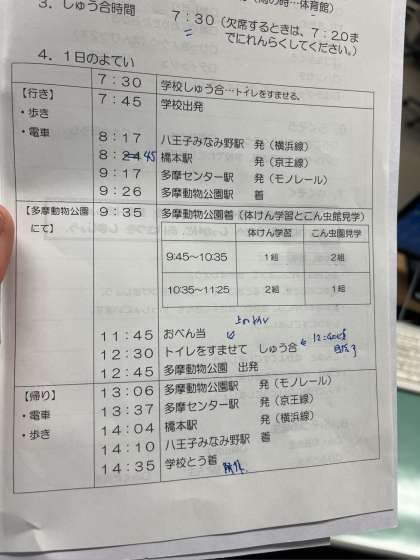 3．しゅう合時間
7：30（欠席するときは、7：20ま
でにれんらくしてください。）
4．1日のよてい
7：30 学校しゅう合…トイレをすませる。
【行き】 7：45 学校出発
・歩き
・電車 8：17 八王子みなみ野駅 発（横浜線）
8：24 45 橋本駅 発（京王線）
9：17 多摩センター駅 発（モノレール）
9：26 多摩動物公園駅 着
【多摩動物公園にて】 9：35 多摩動物公園着（体けん学習とこん虫館見学）
体けん学習 こん虫園見学
9:45～10:35 1組 2組
10:35～11:25 2組 1組
11：45 おべん当
12：30 トイレをすませて しゅう合
12：45 多摩動物公園 出発
【帰り】 13：06 多摩動物公園駅 発（モノレール）
・電車 13：37 多摩センター駅 発（京王線）
・歩き 14：04 橋本駅 発（横浜線）
14：10 八王子みなみ野駅 着
14：35 学校とう着